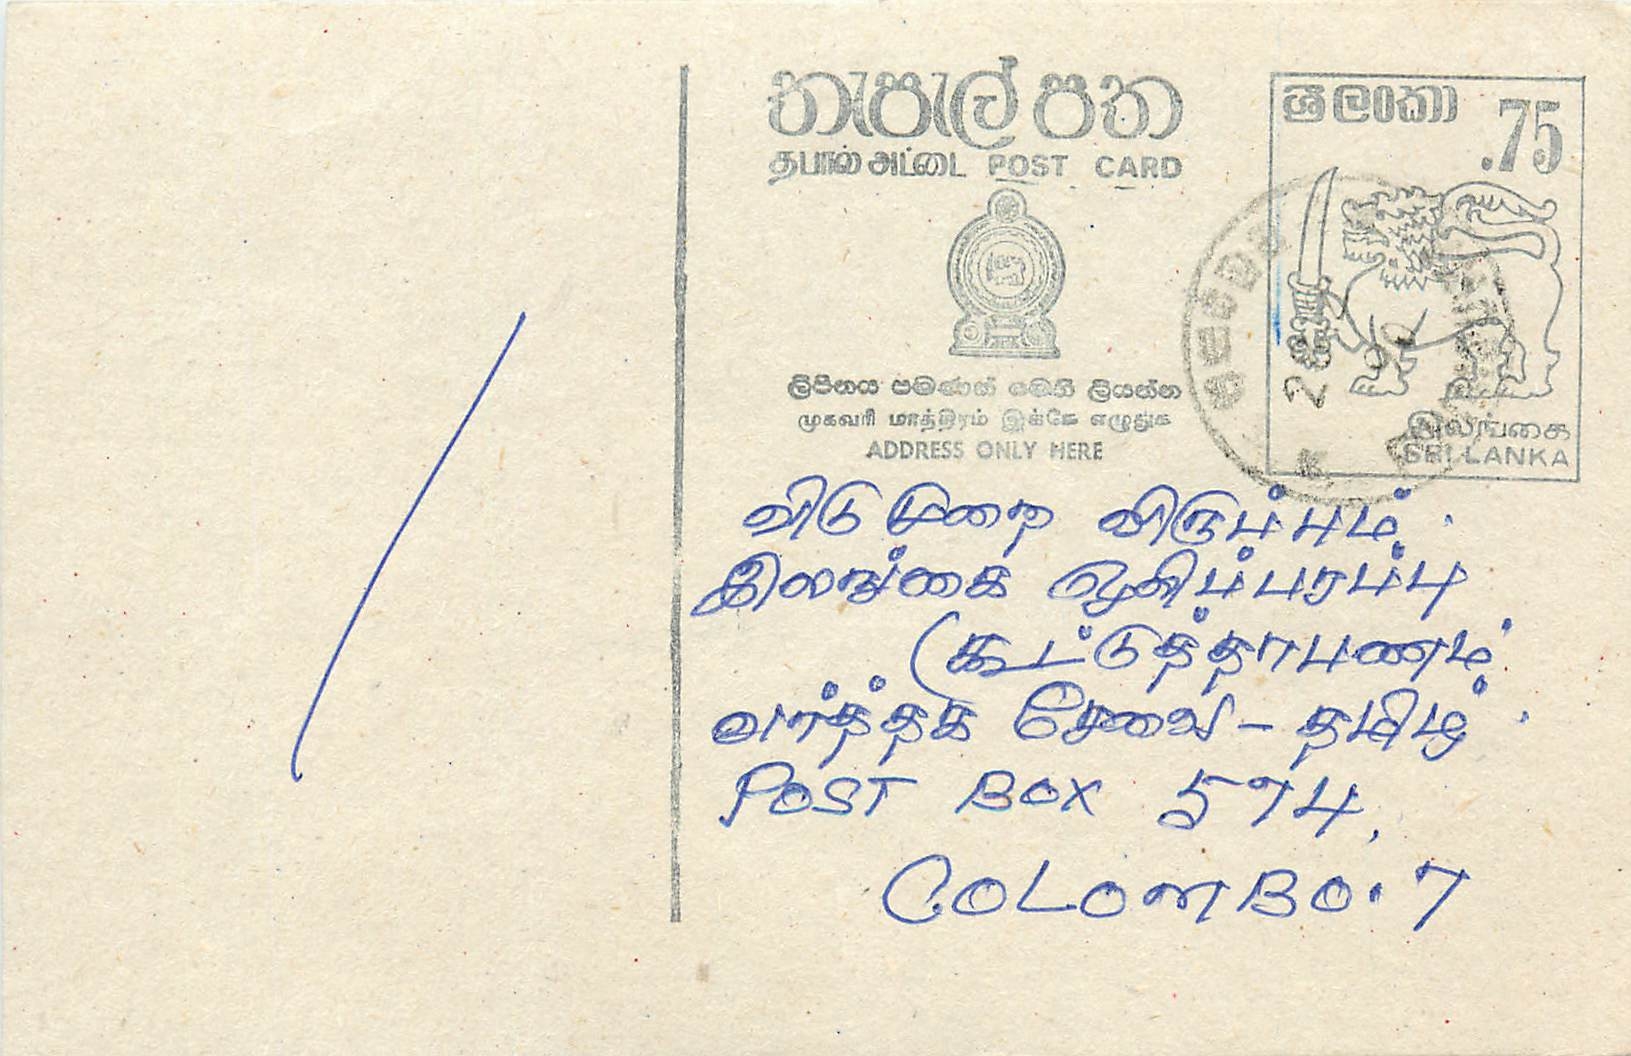 තැපැල් පත
தபால் அட்டை POST CARD
ශ්‍රී ලංකා .75
ලිපිනය පමණක් මෙහි ලියන්න
முகவரி மாத்திரம் இங்கே எழுதுக
ADDRESS ONLY HERE
இலங்கை
SRI LANKA
விடுமுறை விருப்பம்.
இலங்கை ஒலிபரப்பு
கூட்டுத்தாபணம்
வர்த்தக சேவை - தமிழ்.
POST BOX 574,
COLOMBO.7